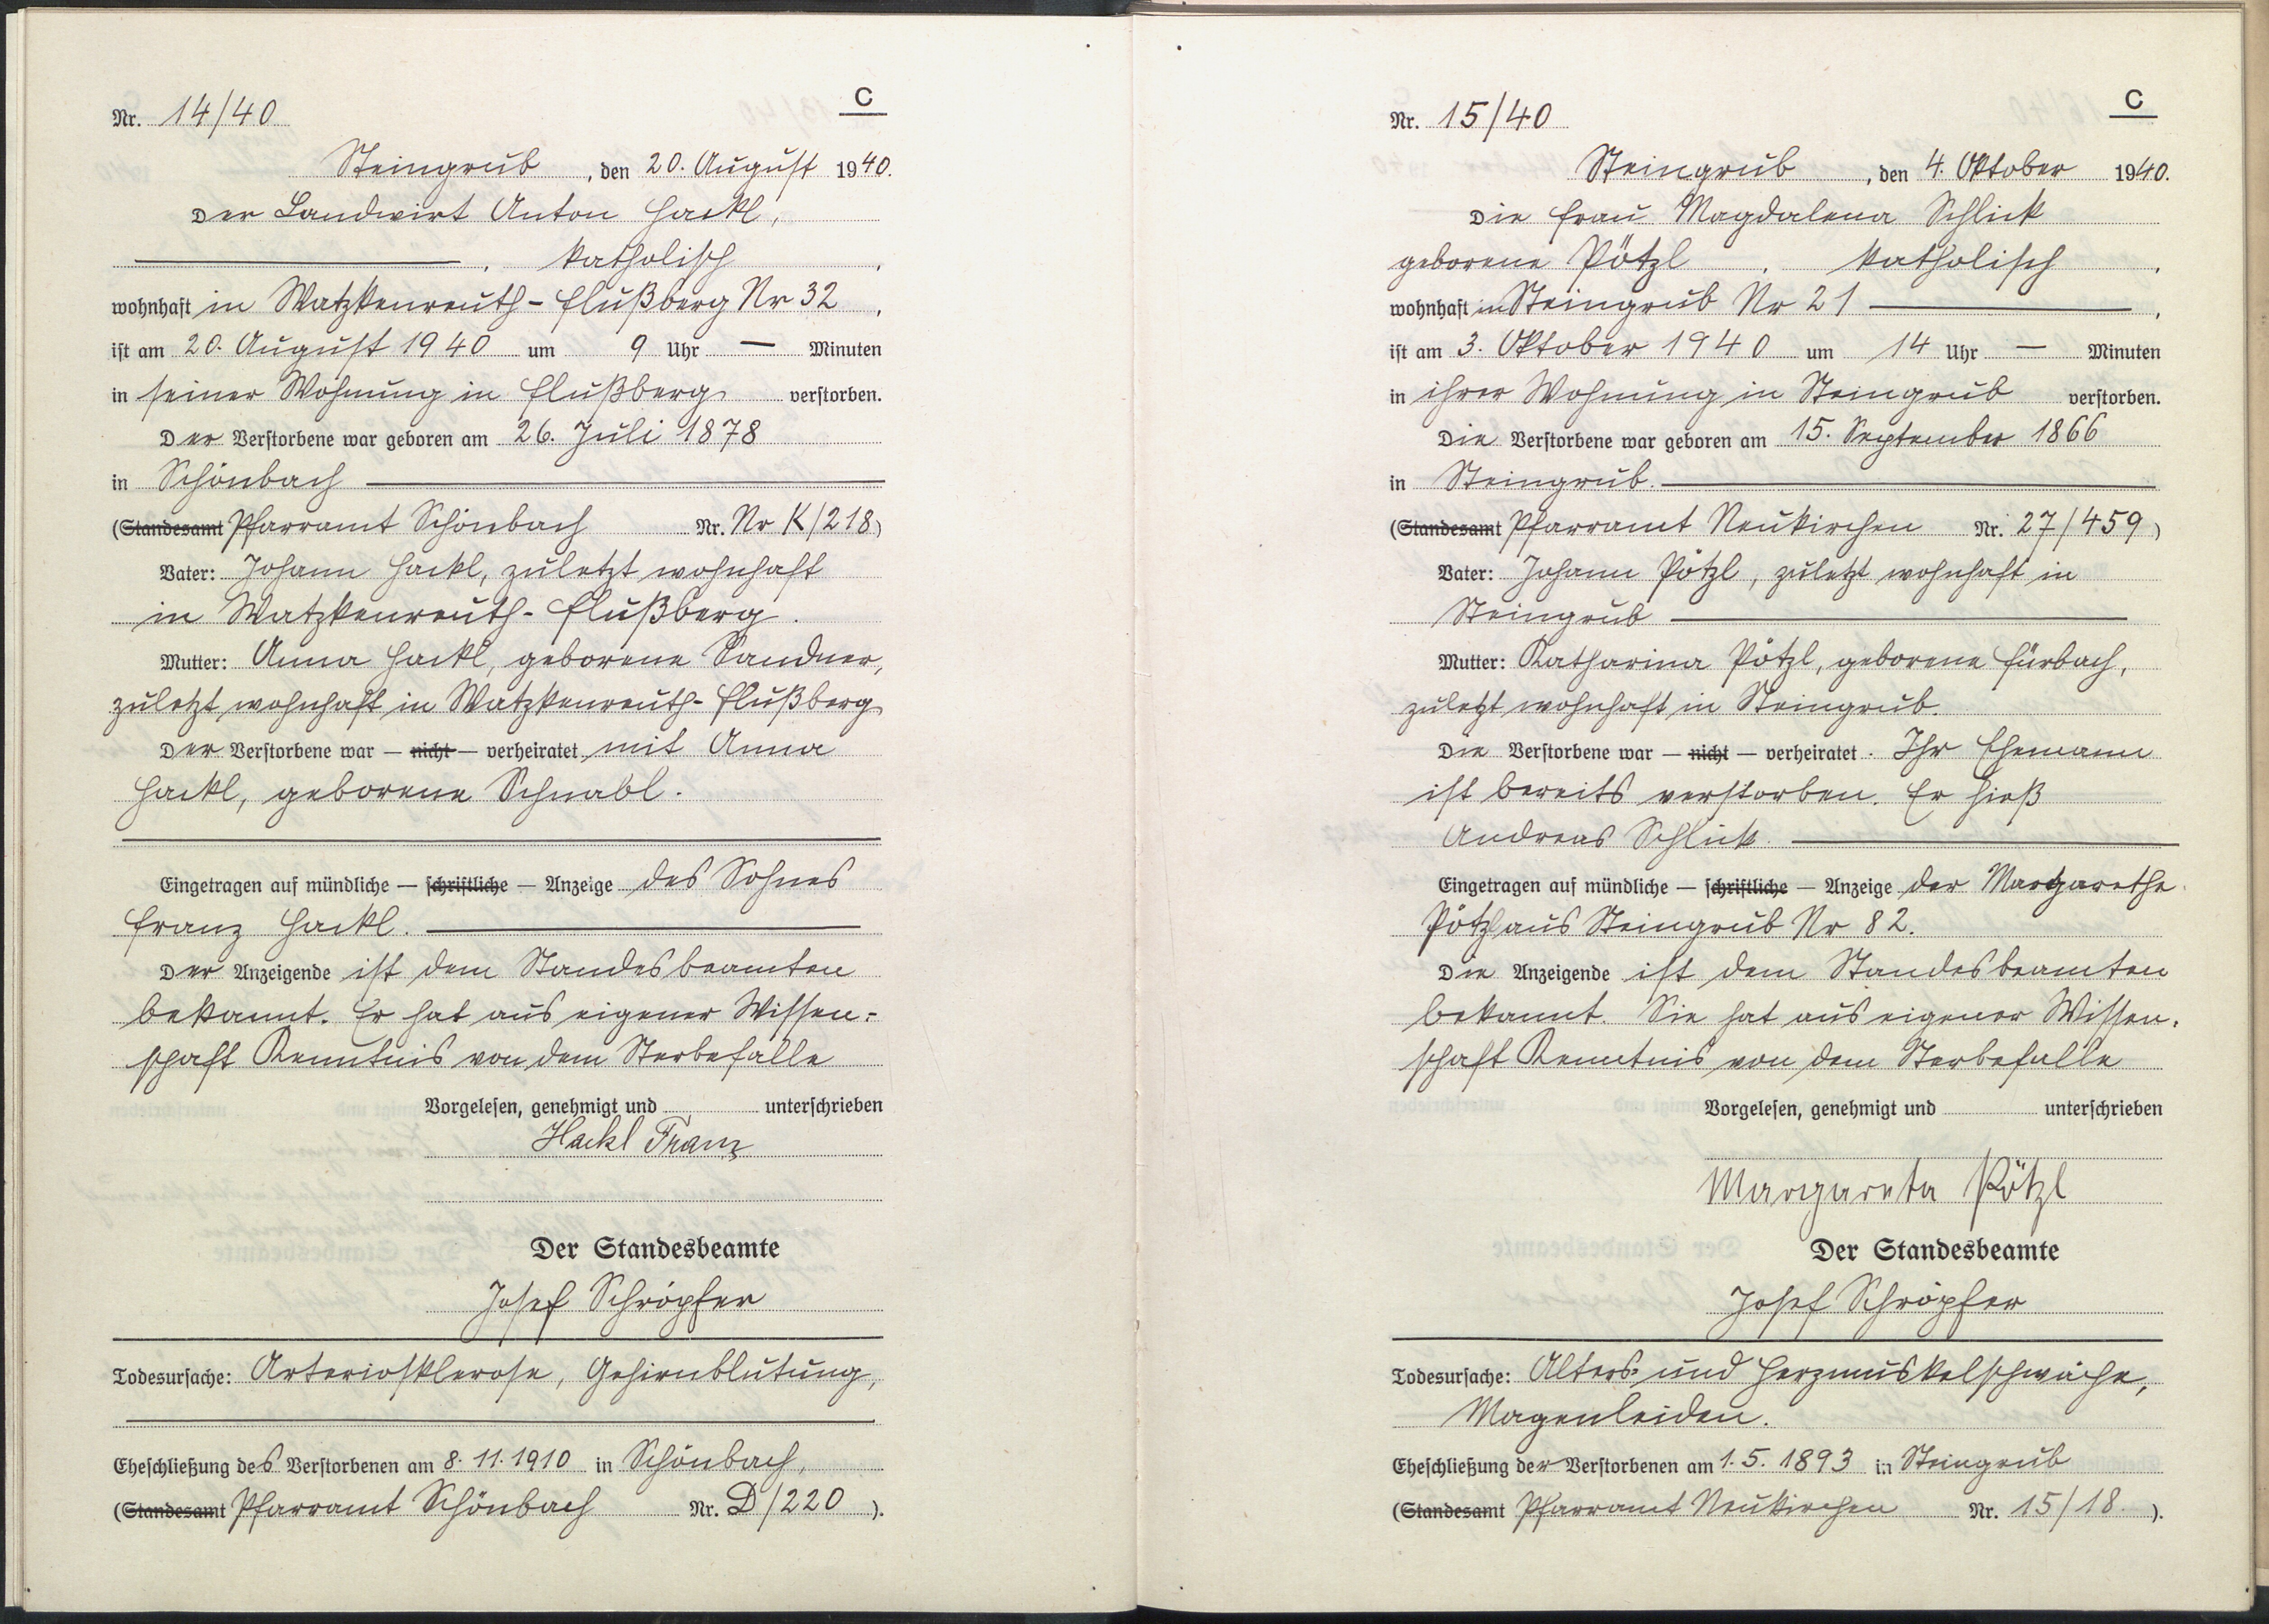 C
Nr. 14/40
Steingrub, den 20. August 1940.
Der Landwirt Anton Hackl,
, katholisch,
wohnhaft in Watzkenreuth-Flußberg Nr 32,
ist am 20. August 1940 um 9 Uhr — Minuten
in seiner Wohnung in Flußberg verstorben.
Der Verstorbene war geboren am 26. Juli 1878
in Schönbach
(Standesamt Pfarramt Schönbach Nr. Nr K/218)
Vater: Johann Hackl, zuletzt wohnhaft
in Watzkenreuth-Flußberg.
Mutter: Anna Hackl, geborene Sandner,
zuletzt wohnhaft in Watzkenreuth-Flußberg
Der Verstorbene war — nicht — verheiratet mit Anna
Hackl, geborene Schnabl.
Eingetragen auf mündliche — schriftliche — Anzeige des Sohnes
Franz Hackl.
Der Anzeigende ist dem Standesbeamten
bekannt. Er hat aus eigener Wissen-
schaft Kenntnis von dem Sterbefalle
Vorgelesen, genehmigt und unterschrieben
Hackl Franz
Der Standesbeamte
Josef Schröpfer
Todesursache: Arteriosklerose, Gehirnblutung,
Eheschließung des Verstorbenen am 8.11.1910 in Schönbach,
(Standesamt Pfarramt Schönbach Nr. D/220).
C
Nr. 15/40
Steingrub, den 4. Oktober 1940.
Die Frau Magdalena Schlick
geborene Pötzl, katholisch,
wohnhaft in Steingrub Nr 21,
ist am 3. Oktober 1940 um 14 Uhr — Minuten
in ihrer Wohnung in Steingrub verstorben.
Die Verstorbene war geboren am 15. September 1866
in Steingrub.
(Standesamt Pfarramt Neukirchen Nr. 27/459)
Vater: Johann Pötzl, zuletzt wohnhaft in
Steingrub
Mutter: Katharina Pötzl, geborene Fürbach,
zuletzt wohnhaft in Steingrub.
Die Verstorbene war — nicht — verheiratet. Ihr Ehemann
ist bereits verstorben. Er hieß
Andreas Schlick.
Eingetragen auf mündliche — schriftliche — Anzeige der Margarethe
Pötzl aus Steingrub Nr 82.
Die Anzeigende ist dem Standesbeamten
bekannt. Sie hat aus eigener Wissen-
schaft Kenntnis von dem Sterbefalle
Vorgelesen, genehmigt und unterschrieben
Margareta Pötzl
Der Standesbeamte
Josef Schröpfer
Todesursache: Alters- und Herzmuskelschwäche,
Magenleiden.
Eheschließung der Verstorbenen am 1.5.1893 in Steingrub
(Standesamt Pfarramt Neukirchen Nr. 15/18.).